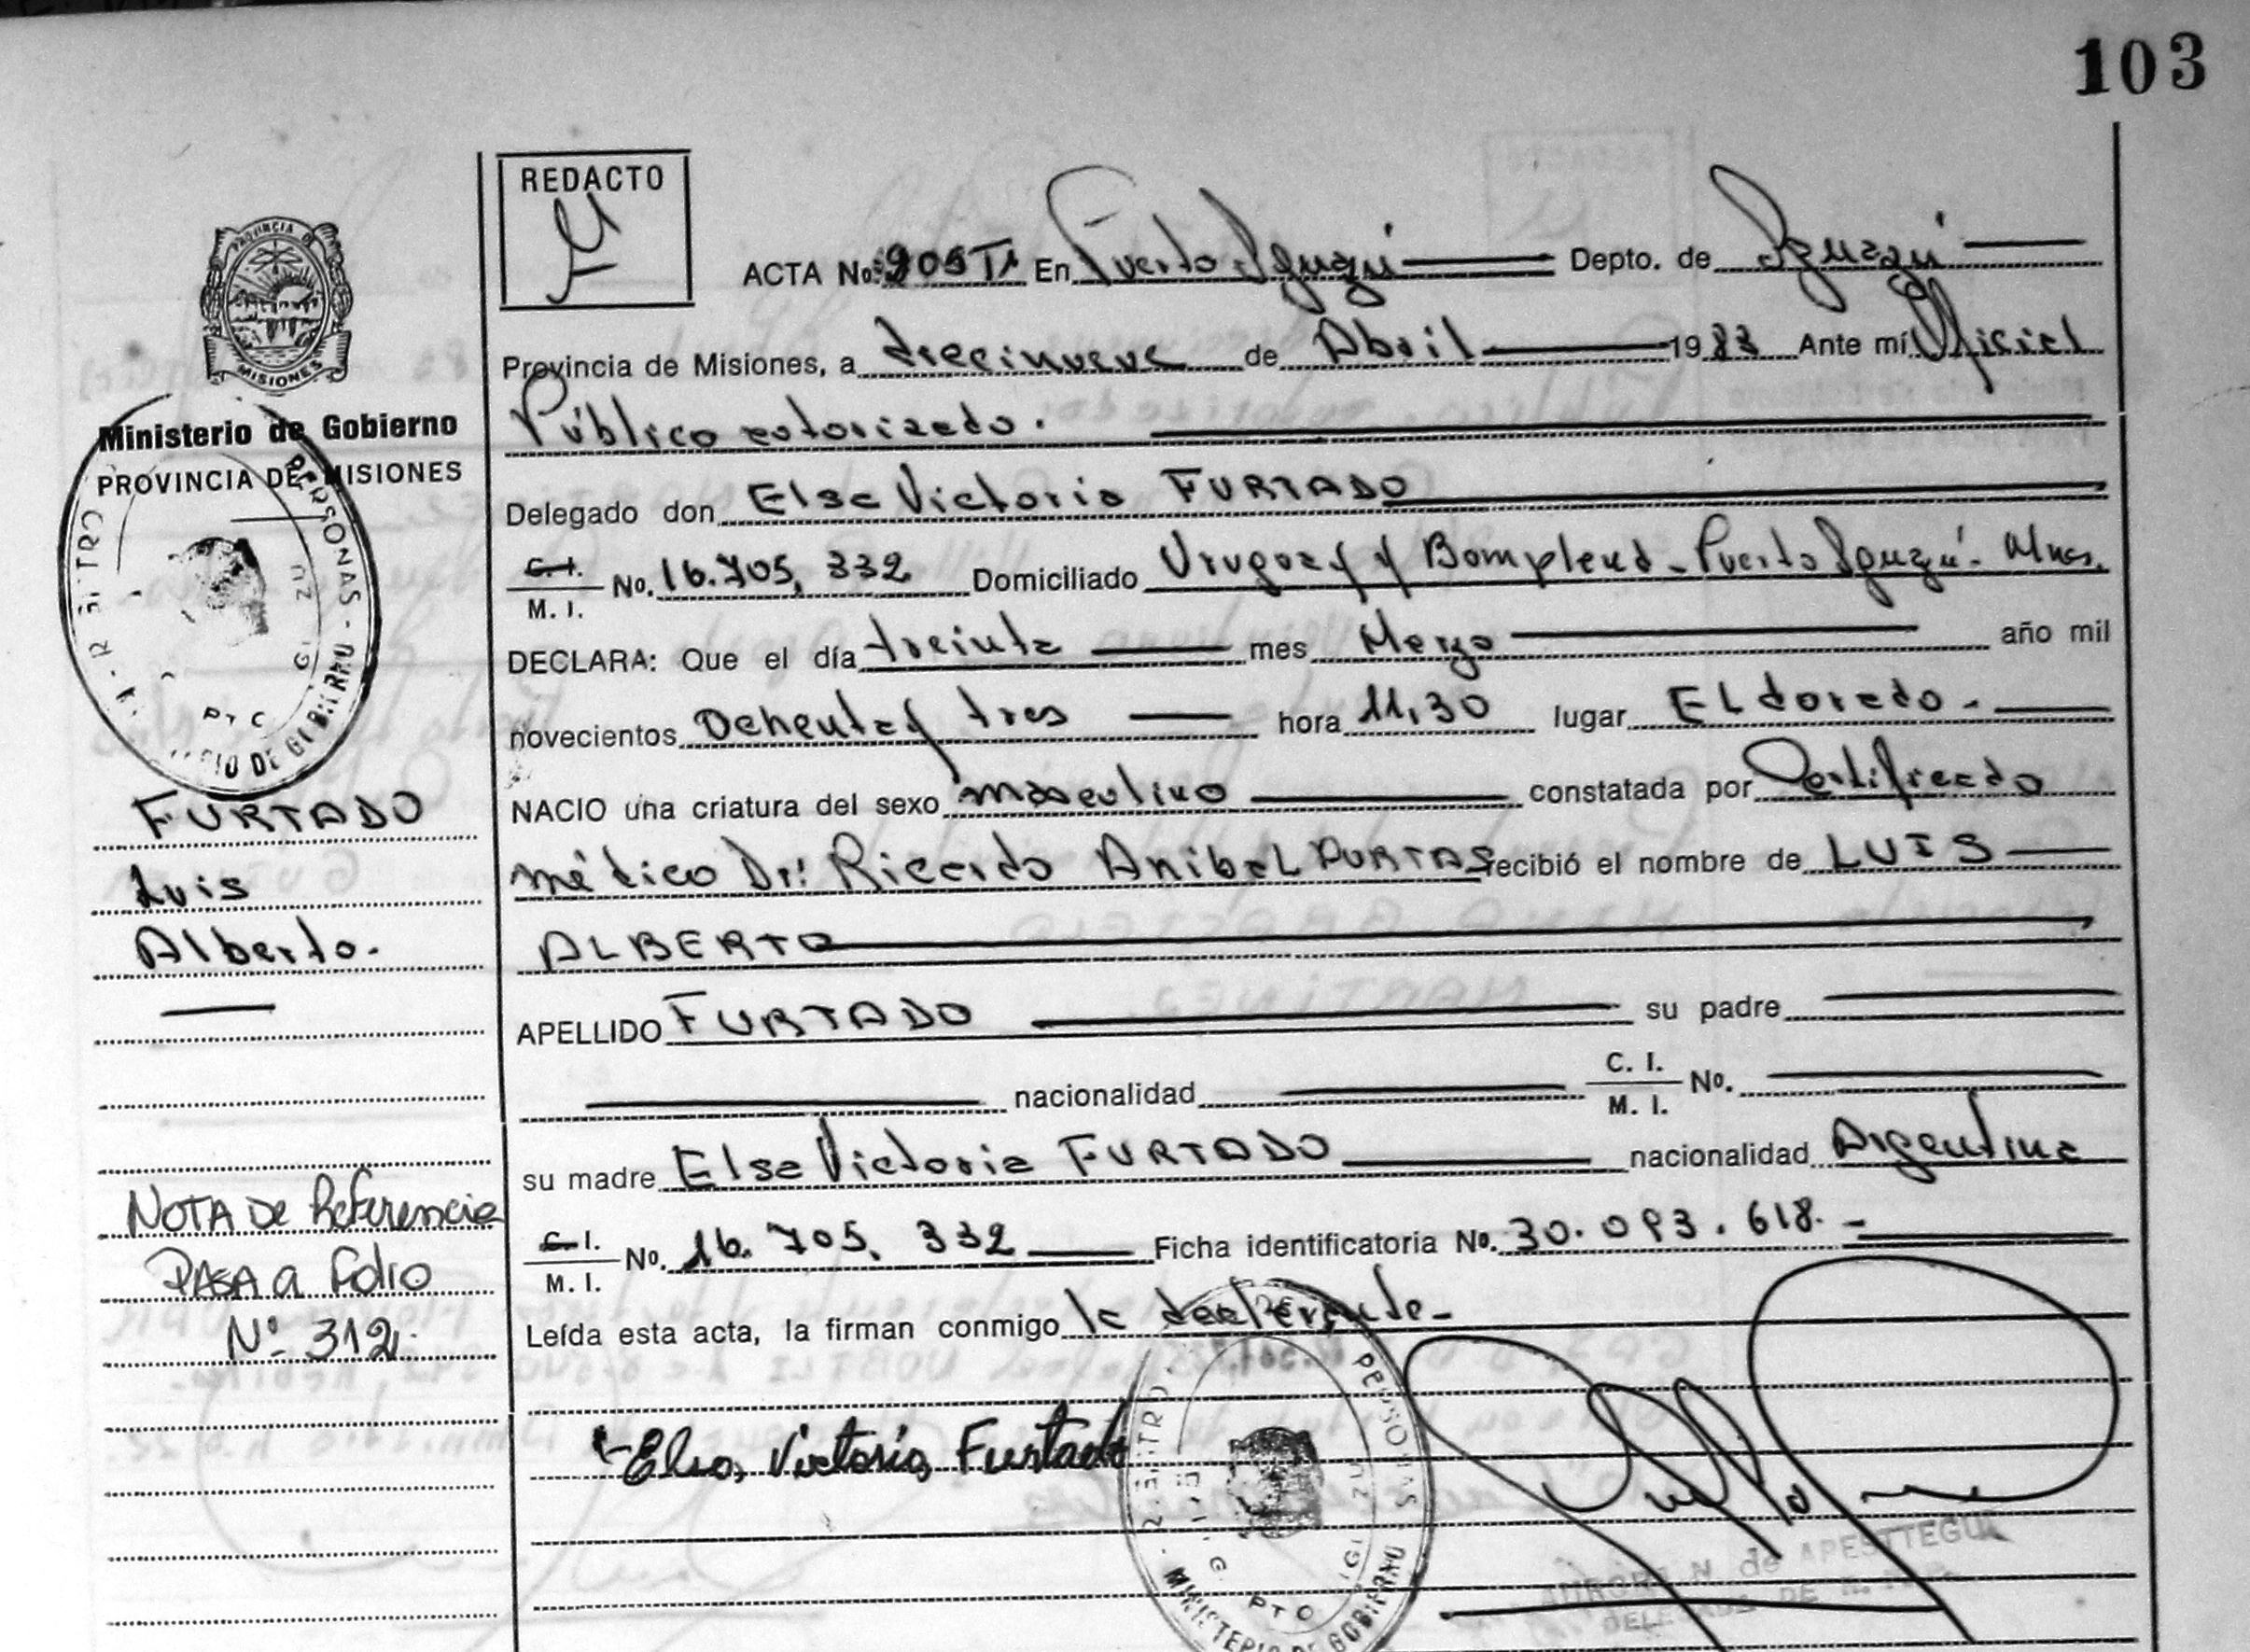 103
REDACTO
ACTA No: 205 TI En Puerto Iguazú Depto. de Iguazú
Provincia de Misiones, a diecinueve de Abril 1983 Ante mí Oficial
Público autorizado.
Delegado don Elsa Victoria FURTADO
C. I. M. I. No. 16.705,332 Domiciliado Uruguay y Bompland - Puerto Iguazú - Mnes.
DECLARA: Que el día treinta mes Marzo año mil
novecientos Ochenta y tres hora 11,30 lugar ELdorado.
NACIO una criatura del sexo masculino constatada por Certificado
médico Dr: Ricardo AnibaL recibió el nombre de LUIS
ALBERTO
APELLIDO FURTADO su padre
nacionalidad C. I. M. I. No.
su madre Elsa Victoria FURTADO nacionalidad Argentina
C. I. M. I. No. 16.705,332 Ficha identificatoria No. 30.093.618.-
Leída esta acta, la firman conmigo la declarante-
Elsa Victoria Furtado
AURORA N. de APESTTEGUI
PROVINCIA DE
MISIONES
Ministerio de Gobierno
PROVINCIA DE MISIONES
PERSONAS
FURTADO
Luis
Alberto.
NOTA De Referencia
PASA a Folio
Nº 312.
PERSONAS
MINISTERIO DE GOBIERNO